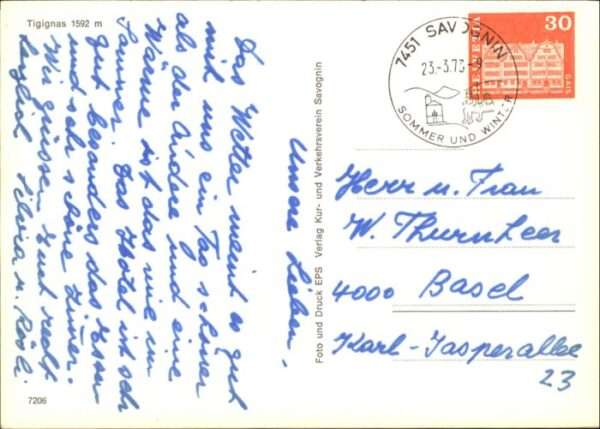 Tigignas 1592 m
Unsere Lieben,
Das Wetter meint es gut
mit uns ein Tag schöner
als der Andere und eine
Wärme ist das wie im
Sommer. Das Hotel ist sehr
gut besonders das Essen
und sehr schöne Zimmer.
Wir grüssen Euch recht
herzlich u. Rösli.
7206
Foto und Druck EPS Verlag Kur- und Verkehrsverein Savognin
7451 SAVOGNIN
23.-3.73-9
SOMMER UND WINTER
HELVETIA
30
GAIS
Herr u. Frau
W. Thurnheer
4000 Basel
Karl-Jasperallee
23